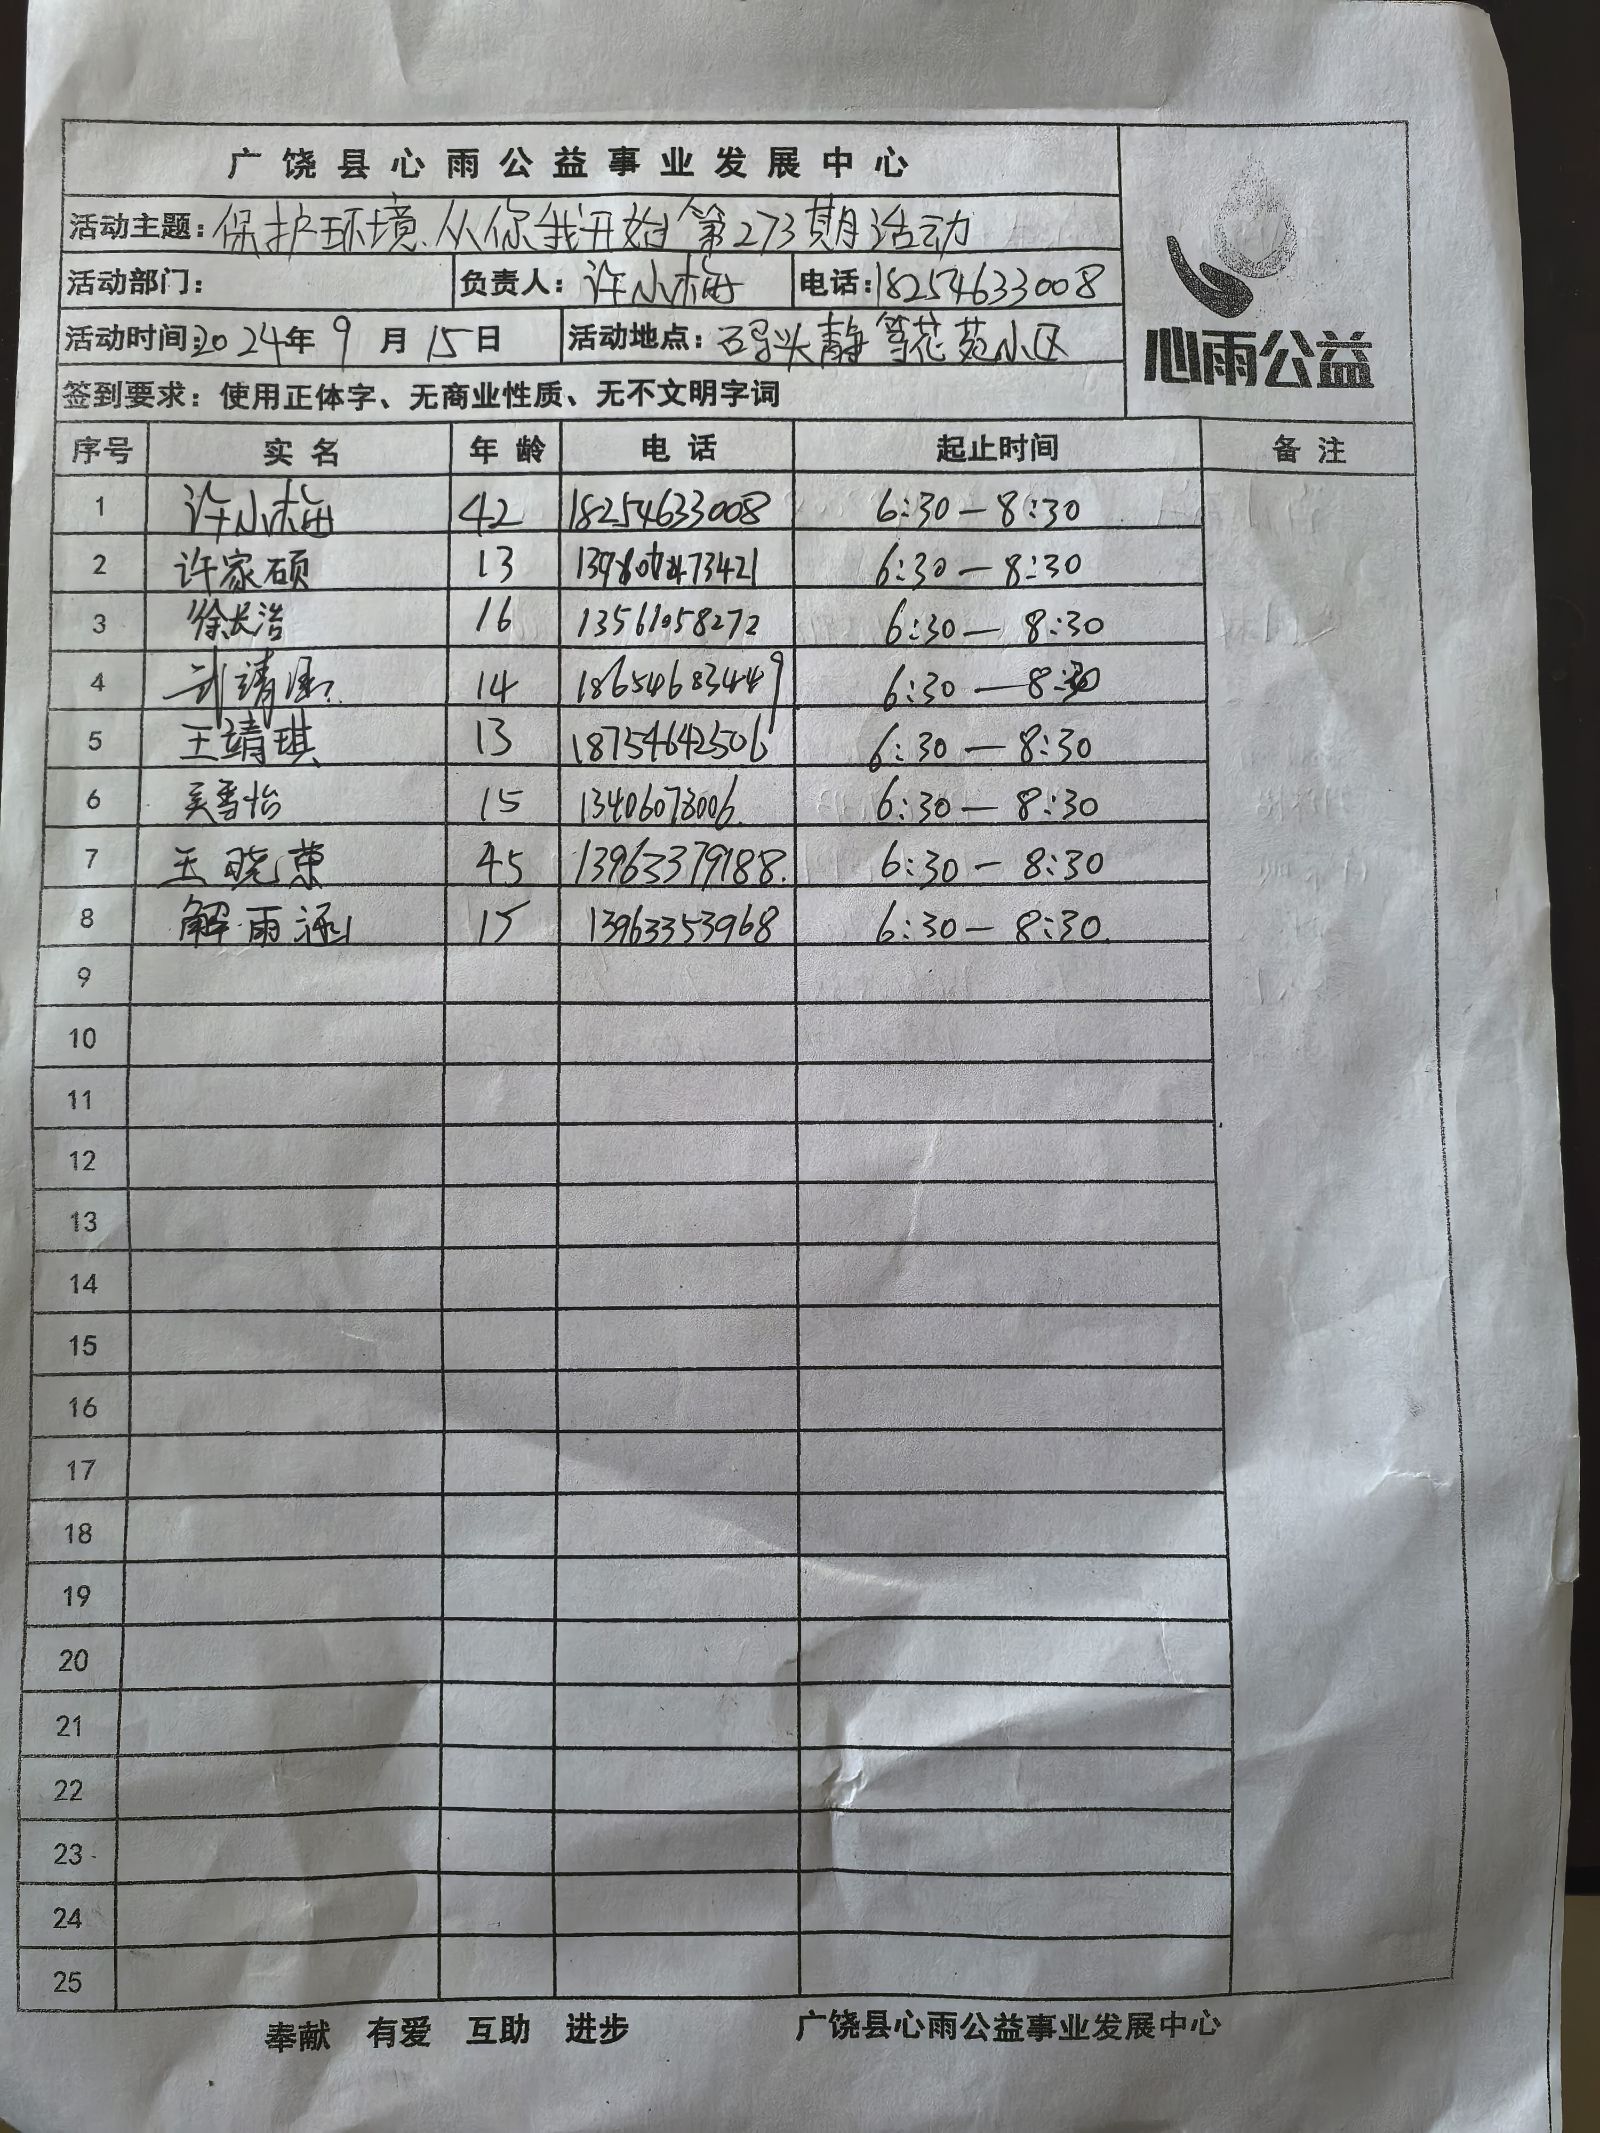 广饶县心雨公益事业发展中心
活动主题：保护环境、从你我开始第273期活动
活动部门： 负责人：许小梅 电话：18254633008
活动时间：2024年9月15日 活动地点：码头静等花苑小区
心雨公益
签到要求：使用正体字、无商业性质、无不文明字词
序号 实名 年龄 电话 起止时间 备注
1 许小梅 42 18254633008 6:30—8:30
2 许家硕 13 6:30—8:30
3 徐长治 16 13561058272 6:30—8:30
4 武靖 14 18654683449 6:30—8:30
5 王靖琪 13 18754642506 6:30—8:30
6 吴雪怡 15 13406073006. 6:30—8:30
7 王晓荣 45 13963379188. 6:30—8:30
8 解雨涵 15 13963353968 6:30—8:30.
9
10
11
12
13
14
15
16
17
18
19
20
21
22
23
24
25
奉献 有爱 互助 进步 广饶县心雨公益事业发展中心